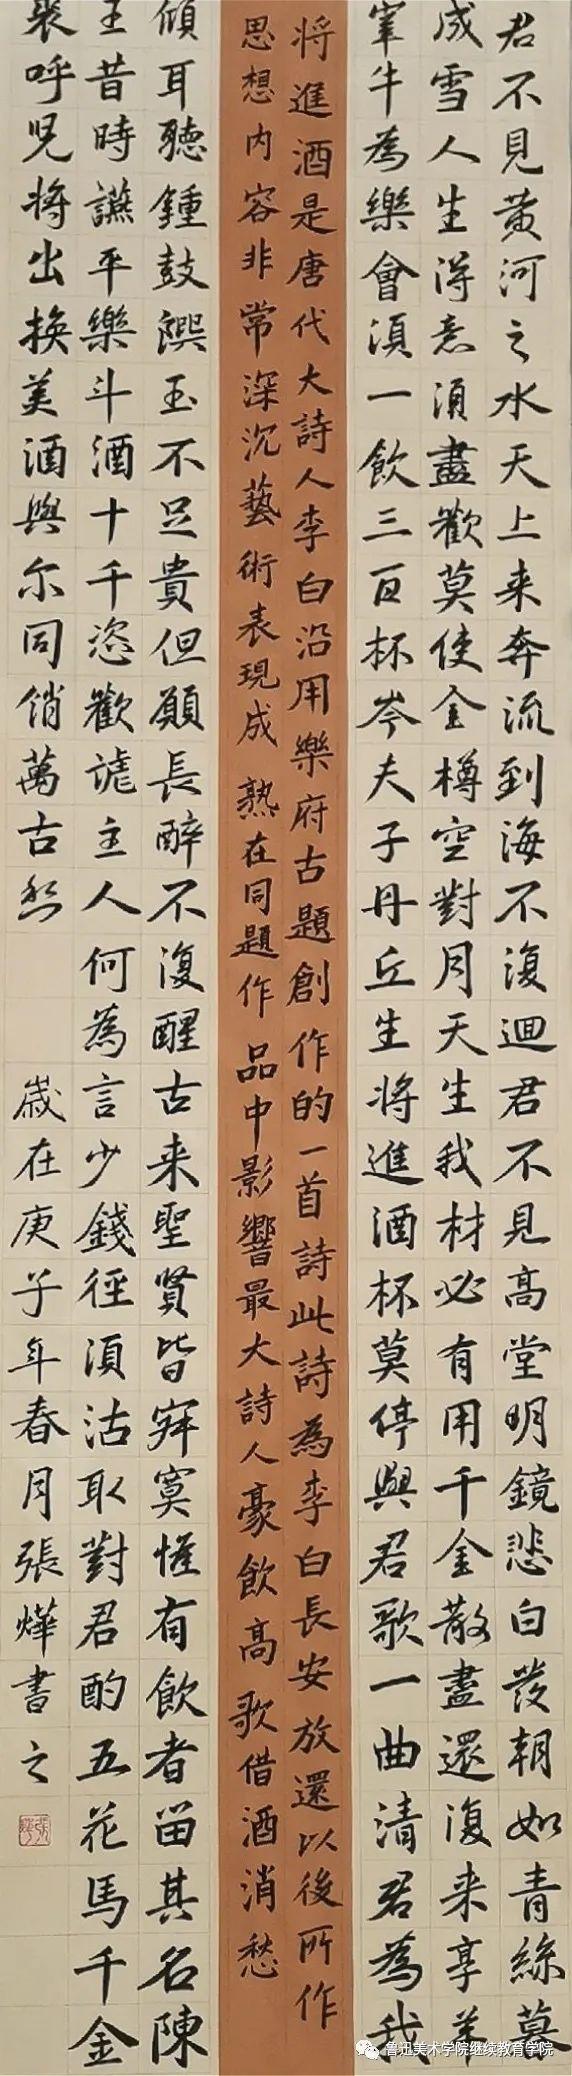 君不見黄河之水天上来奔流到海不復迴君不見高堂明鏡悲白發朝如青絲暮
成雪人生得意須盡歡莫使金樽空對月天生我材必有用千金散盡還復来亨羊
宰牛為樂會須一飲三百杯岑夫子丹丘生將進酒杯莫停與君歌一曲清君為我
将進酒是唐代大詩人李白沿用樂府古題創作的一首詩此詩為李白長安放還以後所作
思想内容非常深沉藝術表現成熟在同題作品中影響最大詩人豪飲高歌借酒消愁
傾耳聽鍾鼓饌玉不足貴但願長醉不復醒古来聖賢皆寂寞惟有飲者留其名陳
王昔時讌平樂斗酒十千恣歡謔主人何為言少錢徑須沽取對君酌五花馬千金
裘呼児將出换美酒與尔同销萬古愁
歲在庚子年春月張燁書之
鲁迅美术学院继续教育学院